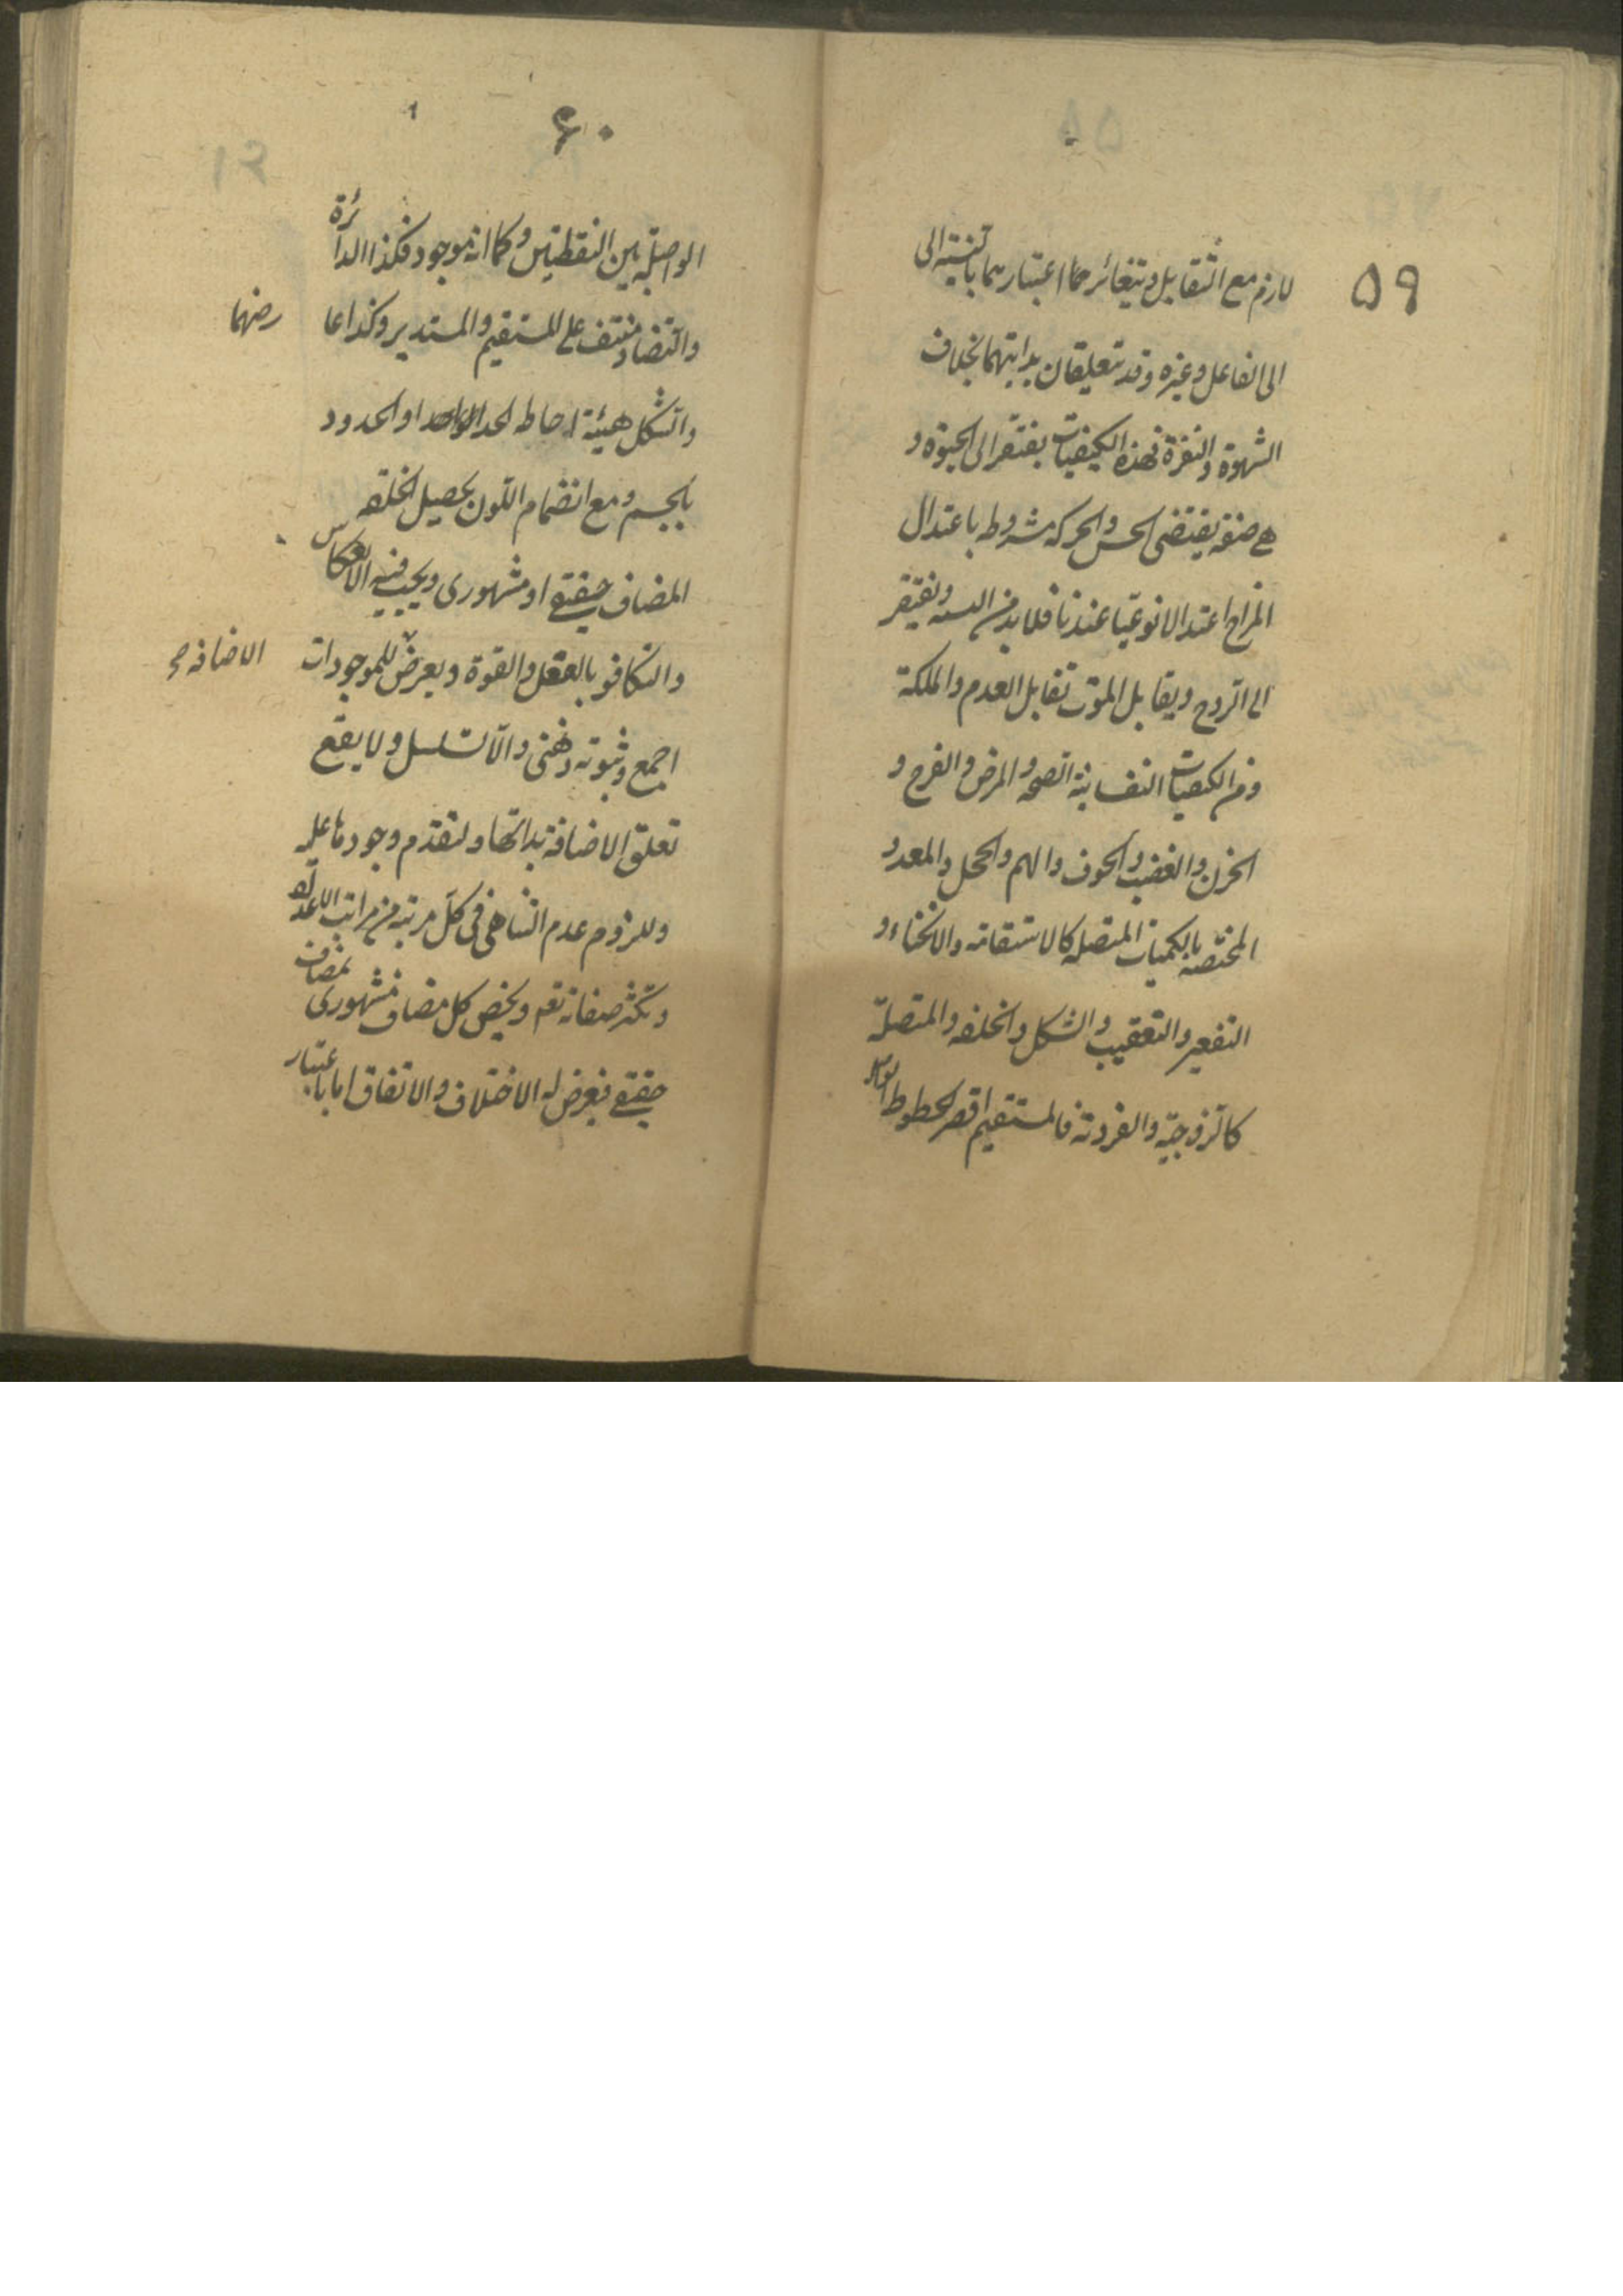 ۵۹
لازم مع التقابل ويتغائر هما اعتبارهما بالنسبة الى
الى الفاعل وغيره وقد تتعلقان بذاتيهما بخلاف
الشهوة والنفرة فهذه الكيفيات يفتقر الى الحيوة و
هى صفة يقتضى الحس والحركة مشروط باعتدال
المزاج اعتدالا نوعيا عندنا فلا بد من البنية ويفتقر
الى الروح ويقابل الموت تقابل العدم والملكة
ومن الكيفيات النفسانية الصحة والمرض والفرح و
الحزن والغضب والخوف والهم والخجل والمعدود
المختصة بالكميات المتصلة كالاستقامة والانحناء و
التقعير والتقبيب والشكل والخلقة والمنفصلة
كالزوجية والفردية فالمستقيم اقصر الخطوط
۶۰
الواصلة بين النقطتين وكما انه موجود فكذا الدائرة
والتضاد منتف على المستقيم والمستدير وكذا عا رضهما
والشكل هيئة احاطه الحد الواحد او الحدود
بالجسم ومع انضمام اللون يحصيل الخلقه
المضاف حقيقى او مشهورى ويجب فيه الانعكاس
والتكافو بالفعل والقوة ويعرض للموجودات الاضافه
اجمع وثبوته ذهنى والا تسلسل ولا يقع
تعلق الاضافة بذاتها ولتقدم وجودها عليه
وللزوم عدم التناهى فى كل مرتبة من مراتب الاعداد
وتكثر صفاته تعم ويخص كل مضاف مشهورى بمضاف
حقيقى فيعرض له الاختلاف والاتفاق اما باعتبار